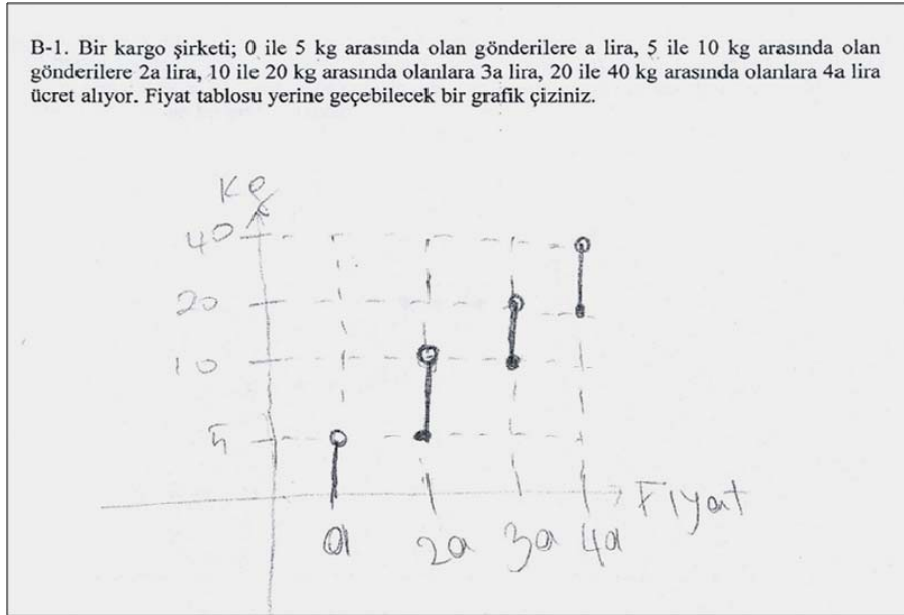 B-1. Bir kargo şirketi; 0 ile 5 kg arasında olan gönderilere a lira, 5 ile 10 kg arasında olan
gönderilere 2a lira, 10 ile 20 kg arasında olanlara 3a lira, 20 ile 40 kg arasında olanlara 4a lira
ücret alıyor. Fiyat tablosu yerine geçebilecek bir grafik çiziniz.
Kg
40
20
10
5
a 2a 3a 4a Fiyat